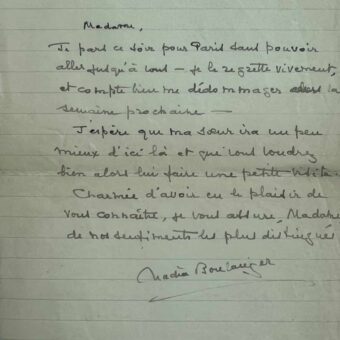 Madame,
Je part ce soir pour Paris sans pouvoir
aller jusqu'à vous — je le regrette vivement,
et compte bien me dédommager alors la
semaine prochaine —
J'espère que ma sœur ira un peu
mieux d'ici là et que vous voudrez
bien alors lui faire une petite visite.
Charmée d'avoir eu le plaisir de
vous connaître, je vous assure, Madame
de nos sentiments les plus distingués
Nadia Boulanger